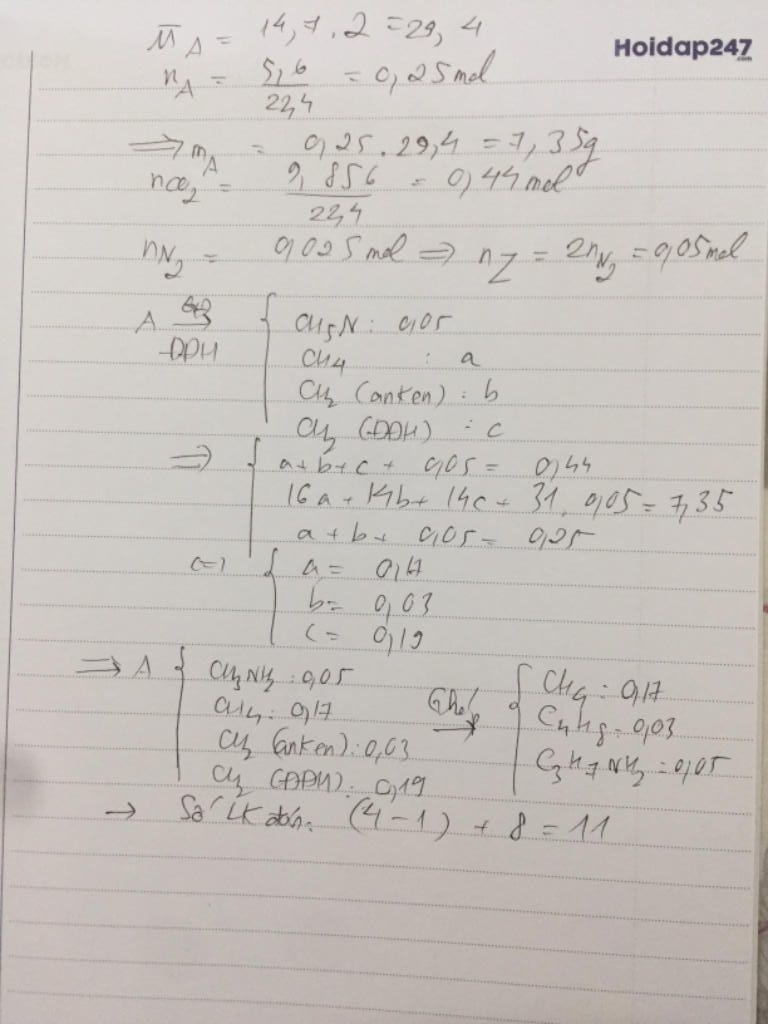 M̅_A = 14,7 . 2 = 29,4
Hoidap247
.com
n_A = 5,6/22,4 = 0,25 mol
=> m_A = 0,25 . 29,4 = 7,35g
nCO2 = 9,856/22,4 = 0,44 mol
nN2 = 0,025 mol => n_Z = 2n_N2 = 0,05 mol
A → -ĐĐH { CH5N : 0,05
CH4 : a
CH2 (anken) : b
CH2 (ĐĐH) : c
=> { a + b + c + 0,05 = 0,44
16a + 14b + 14c + 31 . 0,05 = 7,35
a + b + 0,05 = 0,25
<=> { a = 0,17
b = 0,03
c = 0,19
=> A { CH3NH2 : 0,05
CH4 : 0,17
CH2 (anken) : 0,03
CH2 (ĐĐH) : 0,19
Ghép → { CH4 : 0,17
C4H8 = 0,03
C3H7NH2 = 0,05
→ Số LK đơn: (4 - 1) + 8 = 11